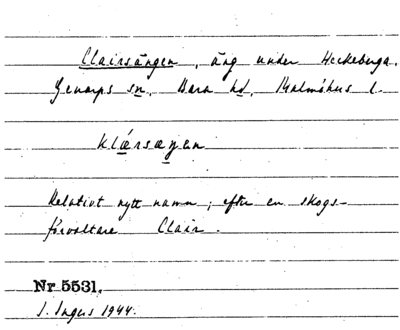 Clairsängen, äng under Heckeberga.
Genarps sn. Bara hd. Malmöhus l.
klærsæŋen
Relativt nytt namn; efter en skogs-
förvaltare Clair.
Nr 5531.
I. Ingers 1944.